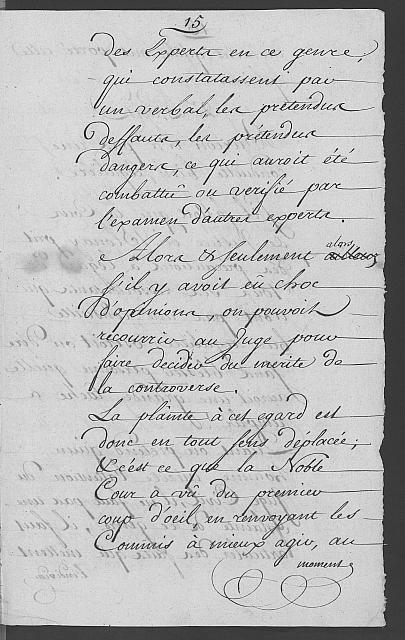 15
des Experts en ce genre,
qui constatassent par
un verbal, les pretendus
deffauts, les prétendus
dangers, ce qui auroit été
combattû ou verifié par
l'examen d'autres experts.
Alors & seulement alors
s'il y avoit eû choc
d'opinions, on pouvoit
recourrir au Juge pour
faire decider du merite de
la controverse.
La plainte à cet egard est
donc en tout sens déplacée;
& c'est ce que la Noble
Cour à vû du premier
coup d'oeil, en renvoyant les
Commis à mieux agir, au
moment